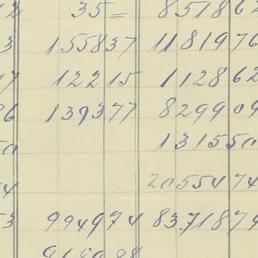 2 35 = 851862
3 155837 1181976
7 12215 112862
6 139377 829909
0 131550
4 2055474
3 994974 8371879